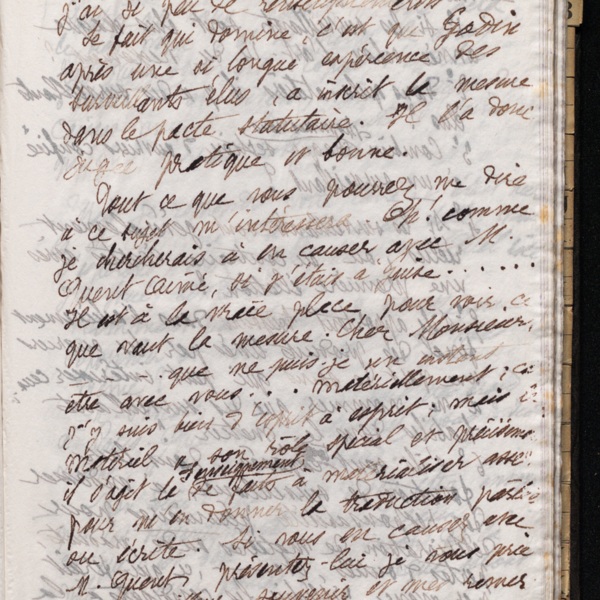 j'ai si peu de renseignements
Le fait qui domine, c'est que Godin
après une si longue expérience des
surveillants élus, a inscrit la mesure
dans le pacte statutaire. Il l'a donc
jugée pratique et bonne.
Tout ce que vous pourrez me dire
à ce sujet m'intéressera. Oh! comme
je chercherais à en causer avec M.
Queret aimé, si j'étais à Guise......
Il est à la vraie place pour voir ce
que vaut la mesure. Cher Monsieur,
que ne puis-je un instant
être avec vous... matériellement; ca
j'y suis bien d'esprit à esprit; mais le
matériel a son rôle spécial et précis
il s'agit de renseignement
de faits à matérialiser assez
pour m'en donner la traduction parlée
ou écrite. Si vous en causez avec
M. Queret, présentez-lui je vous prie
souvenir et mes remer